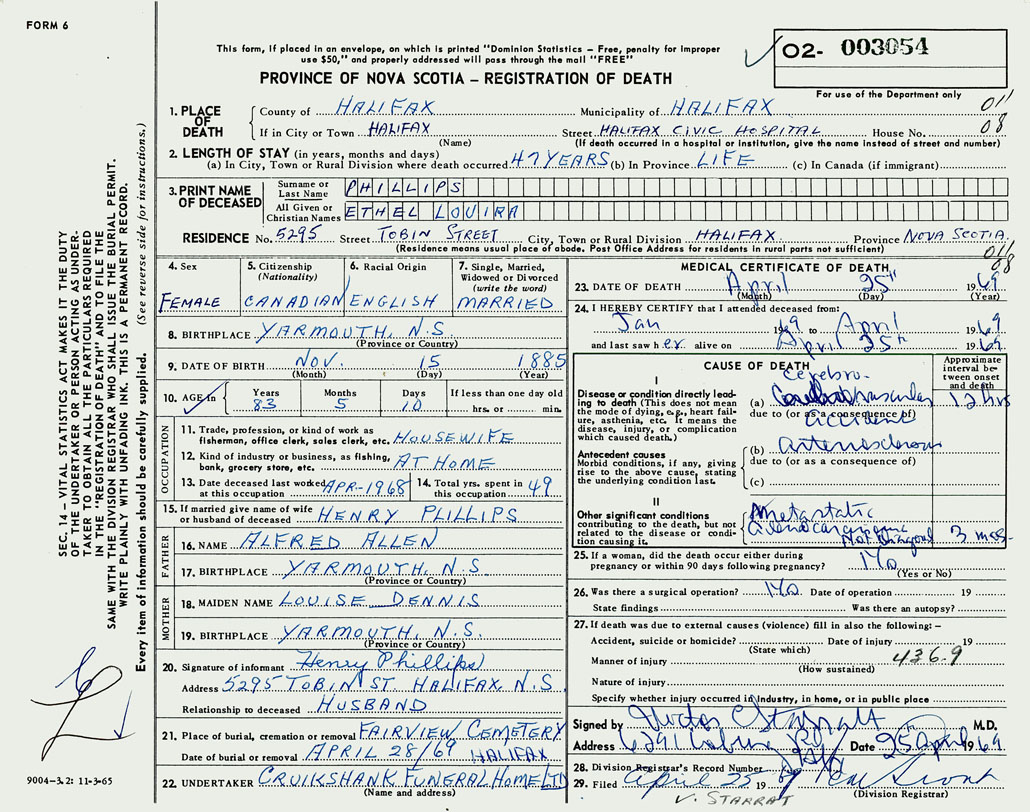 FORM 6
This form, if placed in an envelope, on which is printed "Dominion Statistics – Free, penalty for improper
use $50," and properly addressed will pass through the mail "FREE"
PROVINCE OF NOVA SCOTIA – REGISTRATION OF DEATH
02- 003054
For use of the Department only
011
08
1. PLACE OF DEATH
County of HALIFAX Municipality of HALIFAX
If in City or Town HALIFAX Street HALIFAX CIVIC HOSPITAL House No.
(Name) (If death occurred in a hospital or institution, give the name instead of street and number)
2. LENGTH OF STAY (in years, months and days)
(a) In City, Town or Rural Division where death occurred 47 YEARS (b) In Province LIFE (c) In Canada (if immigrant)
3. PRINT NAME OF DECEASED
Surname or Last Name PHILLIPS
All Given or Christian Names ETHEL LOUIRA
RESIDENCE No. 5295 Street TOBIN STREET City, Town or Rural Division HALIFAX Province NOVA SCOTIA
(Residence means usual place of abode. Post Office Address for residents in rural parts not sufficient)
011
08
4. Sex FEMALE
5. Citizenship (Nationality) CANADIAN
6. Racial Origin ENGLISH
7. Single, Married, Widowed or Divorced (write the word) MARRIED
8. BIRTHPLACE YARMOUTH, N.S.
(Province or Country)
9. DATE OF BIRTH NOV. 15 1885
(Month) (Day) (Year)
10. AGE in Years 83 Months 5 Days 10 If less than one day old hrs. or min.
OCCUPATION
11. Trade, profession or kind of work as fisherman, office clerk, sales clerk, etc. HOUSEWIFE
12. Kind of industry or business, as fishing, bank, grocery store, etc. AT HOME
13. Date deceased last worked at this occupation APR-1968 14. Total yrs. spent in this occupation 49
15. If married give name of wife or husband of deceased HENRY PLILLIPS
FATHER
16. NAME ALFRED ALLEN
17. BIRTHPLACE YARMOUTH, N.S.
(Province or Country)
MOTHER
18. MAIDEN NAME LOUISE DENNIS
19. BIRTHPLACE YARMOUTH, N.S.
(Province or Country)
20. Signature of informant Henry Phillips
Address 5295 TOBIN ST. HALIFAX, N.S.
Relationship to deceased HUSBAND
21. Place of burial, cremation or removal FAIRVIEW CEMETERY
Date of burial or removal APRIL 28/69 HALIFAX
22. UNDERTAKER CRUIKSHANK FUNERAL HOME LTD
(Name and address)
MEDICAL CERTIFICATE OF DEATH
23. DATE OF DEATH April 25th 1969
(Month) (Day) (Year)
24. I HEREBY CERTIFY that I attended deceased from:
Jan 1969 to April 1969
and last saw her alive on April 25th 1969
CAUSE OF DEATH
Approximate interval between onset and death
I
Disease or condition directly leading to death (This does not mean the mode of dying, e.g., heart failure, asthenia, etc. It means the disease, injury, or complication which caused death.)
(a) Cerebro vascular 12 hrs
due to (or as a consequence of)
accident
Antecedent causes
Morbid conditions, if any, giving rise to the above cause, stating the underlying condition last.
(b) arteriosclerosis
due to (or as a consequence of)
(c)
II
Other significant conditions contributing to the death, but not related to the disease or condition causing it.
Metastatic
adenocarcinoma 3 mos.
25. If a woman, did the death occur either during
pregnancy or within 90 days following pregnancy? No
(Yes or No)
26. Was there a surgical operation? No Date of operation 19
State findings Was there an autopsy?
27. If death was due to external causes (violence) fill in also the following:–
Accident, suicide or homicide? Date of injury 19
(State which)
Manner of injury 436.9
(How sustained)
Nature of injury
Specify whether injury occurred in industry, in home, or in public place
Signed by M.D.
Address 6291 Coburg Date 25 April 1969
28. Division Registrar's Record Number
29. Filed April 25 1969
(Division Registrar)
V. STARRAT
SEC. 14 – VITAL STATISTICS ACT MAKES IT THE DUTY
OF THE UNDERTAKER OR PERSON ACTING AS UNDER-
TAKER TO OBTAIN ALL THE PARTICULARS REQUIRED
IN THE "REGISTRATION OF DEATH" AND TO FILE THE
SAME WITH THE DIVISION REGISTRAR WHO SHALL ISSUE THE BURIAL PERMIT.
WRITE PLAINLY WITH UNFADING INK. THIS IS A PERMANENT RECORD.
Every item of information should be carefully supplied. (See reverse side for instructions.)
9004-3.2: 11-3-65